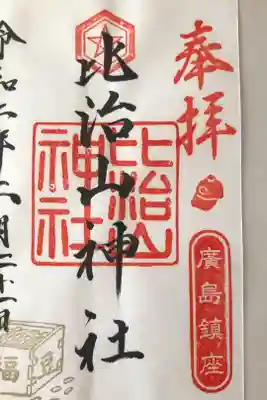 奉拝
廣島鎮座
比治山神社
比治山
神社
令和二年二月
福豆